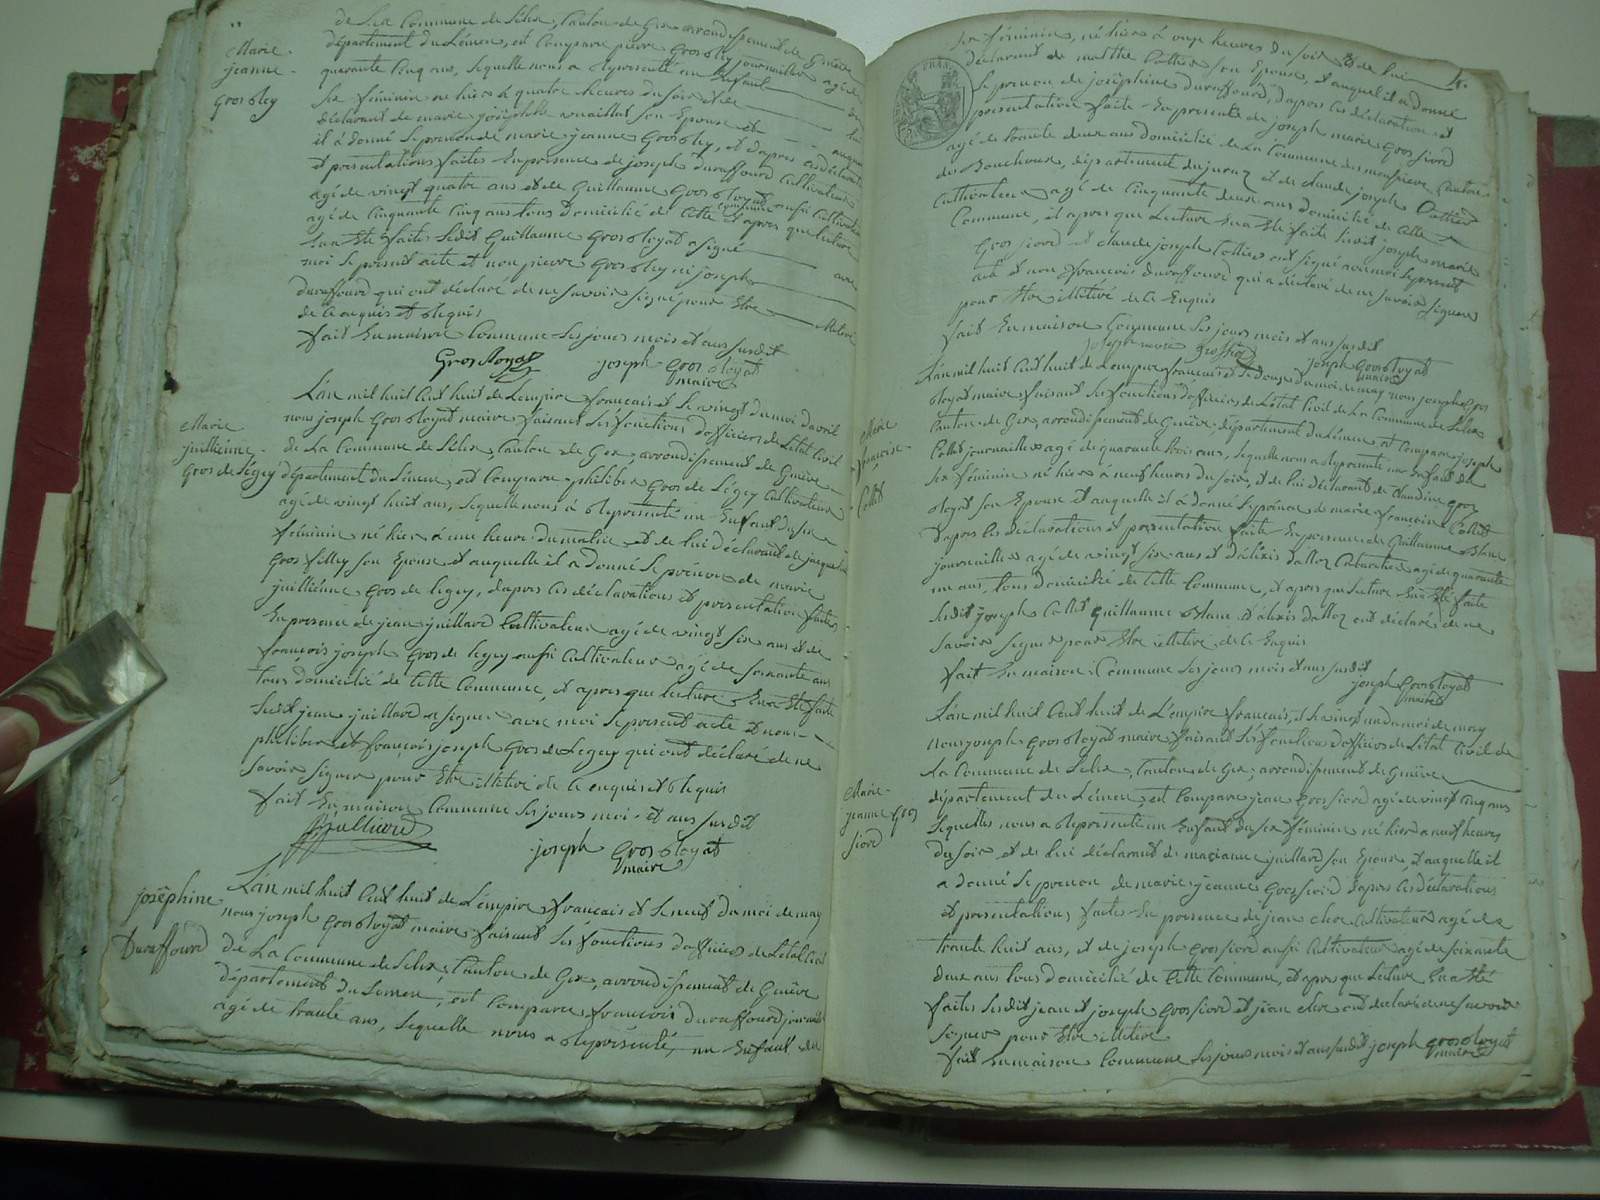 de la Commune de Lélex, Canton de Gex arrondissement de Genève
département du Léman, est Comparu pierre Grosbley journaillier agé de
quarante Cinq ans, lequelle nous a Représenté un Enfant du
Sexe féminin né hier à quatre heures du soir et de lui
déclarant de marie joséphte son Epouse et auquel
il à donné le prénom de marie jeanne Grosbley, et d'après ces déclaration
et présentations faites En présence de joseph Duraffourd Cultivateur
agé de vingt quatre ans et de Guillaume Grosbloyat aussi Cultivateur
agé de Cinquante Cinq ans tous Domicilié de Cette Commune et après que lecture
En a été faite ledit Guillaume Grosbloyat a signé avec
moi le présent acte et non pierre Grosbley ni joseph
Duraffourd qui ont déclaré de ne savoir signé pour Etre illétéré
de Ce enquis et Requis
fait En maison Commune les jours mois et ans susdit
joseph grosbloyat
maire
Marie
jeanne
Grosbley
L'an mil huit Cent huit de L'empire français et le vingt du moi d'avril
nous joseph Grosbloyat maire faisant les fonctions d'officier de L'état Civil
de La Commune de Lélex, Canton de Gex, arrondissement de Genève
département du Léman, est Comparu philiber Gros de Légey Cultivateur
agé de vingt huit ans, lequelle nous à Représenté un Enfant du sexe
féminin né hier à une heure du matin, et de lui déclarant de
Gros filley son Epouse et auquelle il a donné le prénom de marie
juilliénne Gros de legey, d'après ces déclarations et présentation faites
En présence de jean juillard Cultivateur agé de vingt six ans et de
françois joseph Gros de legey aussi Cultivateur agé de soixante ans
tous domicilié de Cette Commune, et après que lecture En a été faite
ledit jean juillard a signer avec moi le présent acte et non
philiber et françois joseph Gros de Legey qui ont déclaré de ne
savoir signer pour Etre illétéré de Ce enquis et Requis
fait En maison Commune les jours moi et ans susdit
joseph grosbloyat
maire
Marie
juilliénne
Gros de Légey
L'an mil huit Cent huit de L'empire français et le neuf du moi de may
nous joseph Grosbloyat maire faisant les fonctions d'officier de L'état Civil
de La Commune de Lélex, Canton de Gex, arrondissement de Genève
département du Léman, est Comparu françois duraffourd journaillier
agé de trante ans, lequelle nous a Représenté, un Enfant du
joséphine
Duraffourd
sexe féminin, né hier à onze heures du soir et de lui
déclarant de son Epouse, et auquel il a donné
le prénom de joséphine duraffourd, d'après ces déclaration et
présentation faite En présence de joseph marie Grossiord
agé de trente deux ans domicilié de La Commune de Canton
des Bouchoux, département du jura et de claude joseph
Cultivateur agé de Cinquante deux ans domicilié de Cette
Commune, et après que Lecture En a été faite ledit joseph marie
Grossiord et claude joseph ont signé avec moi le présent
acte et non françois duraffourd qui a déclaré de ne savoir signer
pour Etre illétéré de Ce Enquis
fait En maison Commune les jours mois et ans susdit
joseph grosbloyat
maire
L'an mil huit Cent huit de L'empire français et le douze du moi de may nous joseph gros
bloyat maire faisant les fonctions d'officier de L'état Civil de La Commune de Lélex
Canton de Gex, arrondissement de Genève, département du Léman, est Comparu joseph
Collet journaillier agé de quarante trois ans, lequelle nous a Représenté un Enfant du
sexe féminin né hier à neuf heures du soir, et de lui déclarant de Claudine gros
bloyat son Epouse et auquelle il à donné le prénom de marie françoise Collet
d'après les déclarations et présentation faite En présence de Guillaume Blanc
journaillier agé de vingt six ans et d'aléxis dalloz agé de quarante
un ans, tous domicilié de Cette Commune, et après que lecture En a été faite
ledit joseph Collet Guillaume Blanc et aléxis dalloz ont déclaré de ne
savoir signer pour Etre illétéré de Ce Enquis
fait En maison Commune les jours mois et ans susdit
joseph Grosbloyat
maire
Marie
françoise
Collet
L'an mil huit Cent huit de L'empire français, et le vingt un du moi de may
Nous joseph Grosbloyat maire faisant les fonction d'officier de L'état Civil de
La Commune de Lélex, Canton de Gex, arrondissement de Genève
département du Léman, est Comparu jean Grossiord agé de vingt Cinq ans
lequelles nous a Représenté un Enfant du sexe féminin né hier à neuf heures
du soir et de lui déclarant de marianne juillard son Epouse, et auquelle il
a donné le prénom de marie jeanne Grossiord d'après les déclarations
et présentations faites En présence de jean Cultivateur agé de
trante huit ans, et de joseph Grossiord aussi Cultivateur agé de soixante
deux ans tous domicilié de Cette Commune, et après que lecture En a été
faites lesdit jean et joseph Grossiord et jean ont déclaré de ne savoir
signer pour Etre illétéré
fait En maison Commune les jours mois et ans susdit joseph grosbloyat
maire
Marie
jeanne gros
siord